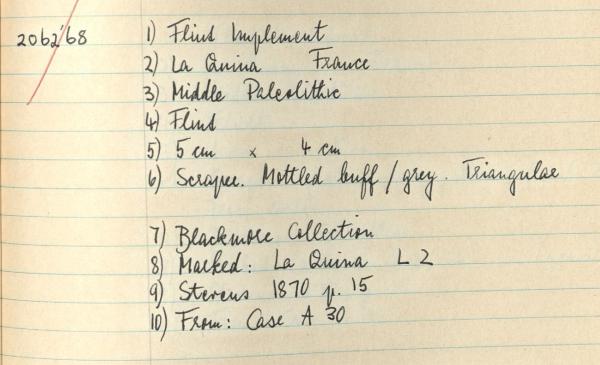 2062'68 1) Flint Implement
2) La Quina France
3) Middle Paleolithic
4) Flint
5) 5 cm x 4 cm
6) Scraper. Mottled buff / grey. Triangular
7) Blackmore Collection
8) Marked: La Quina L 2
9) Stevens 1870 p. 15
10) From: Case A 30